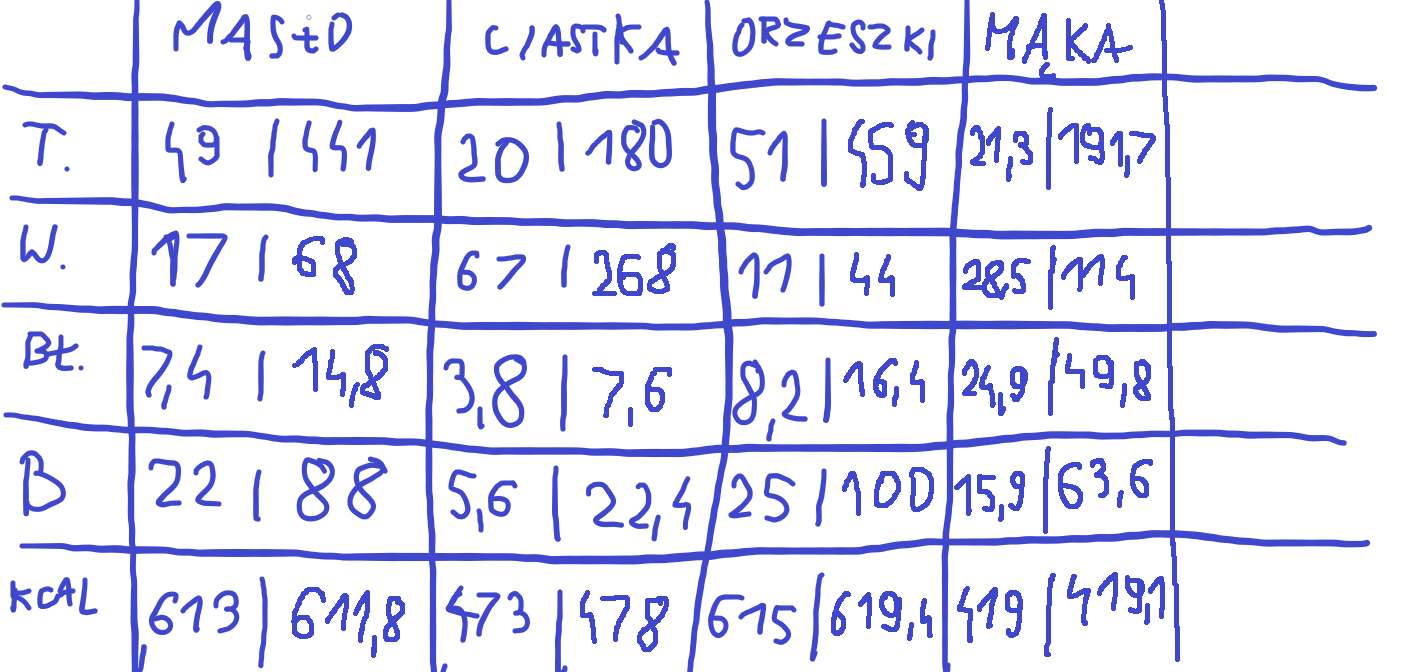 MASŁO CIASTKA ORZESZKI MĄKA
T. 49 | 441 20 | 180 51 | 459 21,3 | 191,7
W. 17 | 68 67 | 268 11 | 44 28,5 | 114
BŁ. 7,4 | 14,8 3,8 | 7,6 8,2 | 16,4 24,9 | 49,8
B 22 | 88 5,6 | 22,4 25 | 100 15,9 | 63,6
KCAL 613 | 611,8 473 | 478 615 | 619,4 419 | 419,1